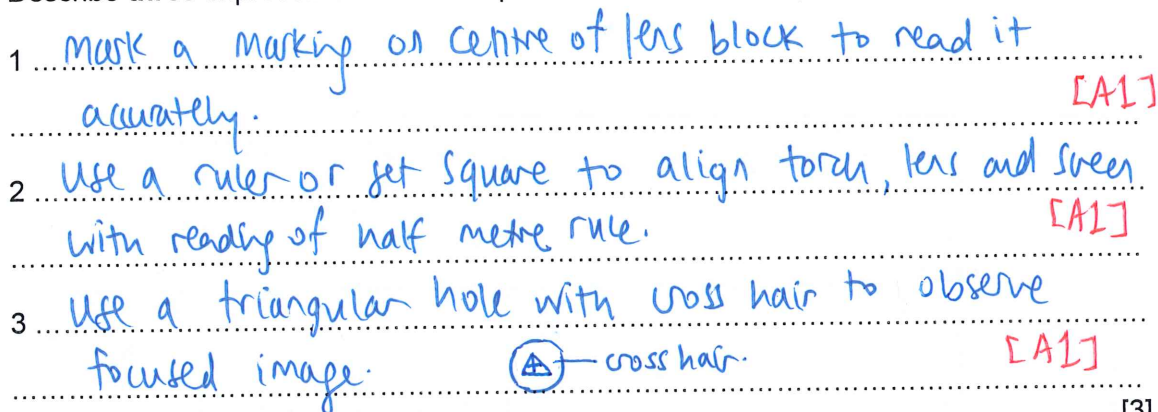 1 mark a marking on centre of lens block to read it
accurately. [A1]
2 Use a ruler or set square to align torch, lens and screen
with reading of half metre rule. [A1]
3 Use a triangular hole with cross hair to observe
focused image. cross hair. [A1]
[3]